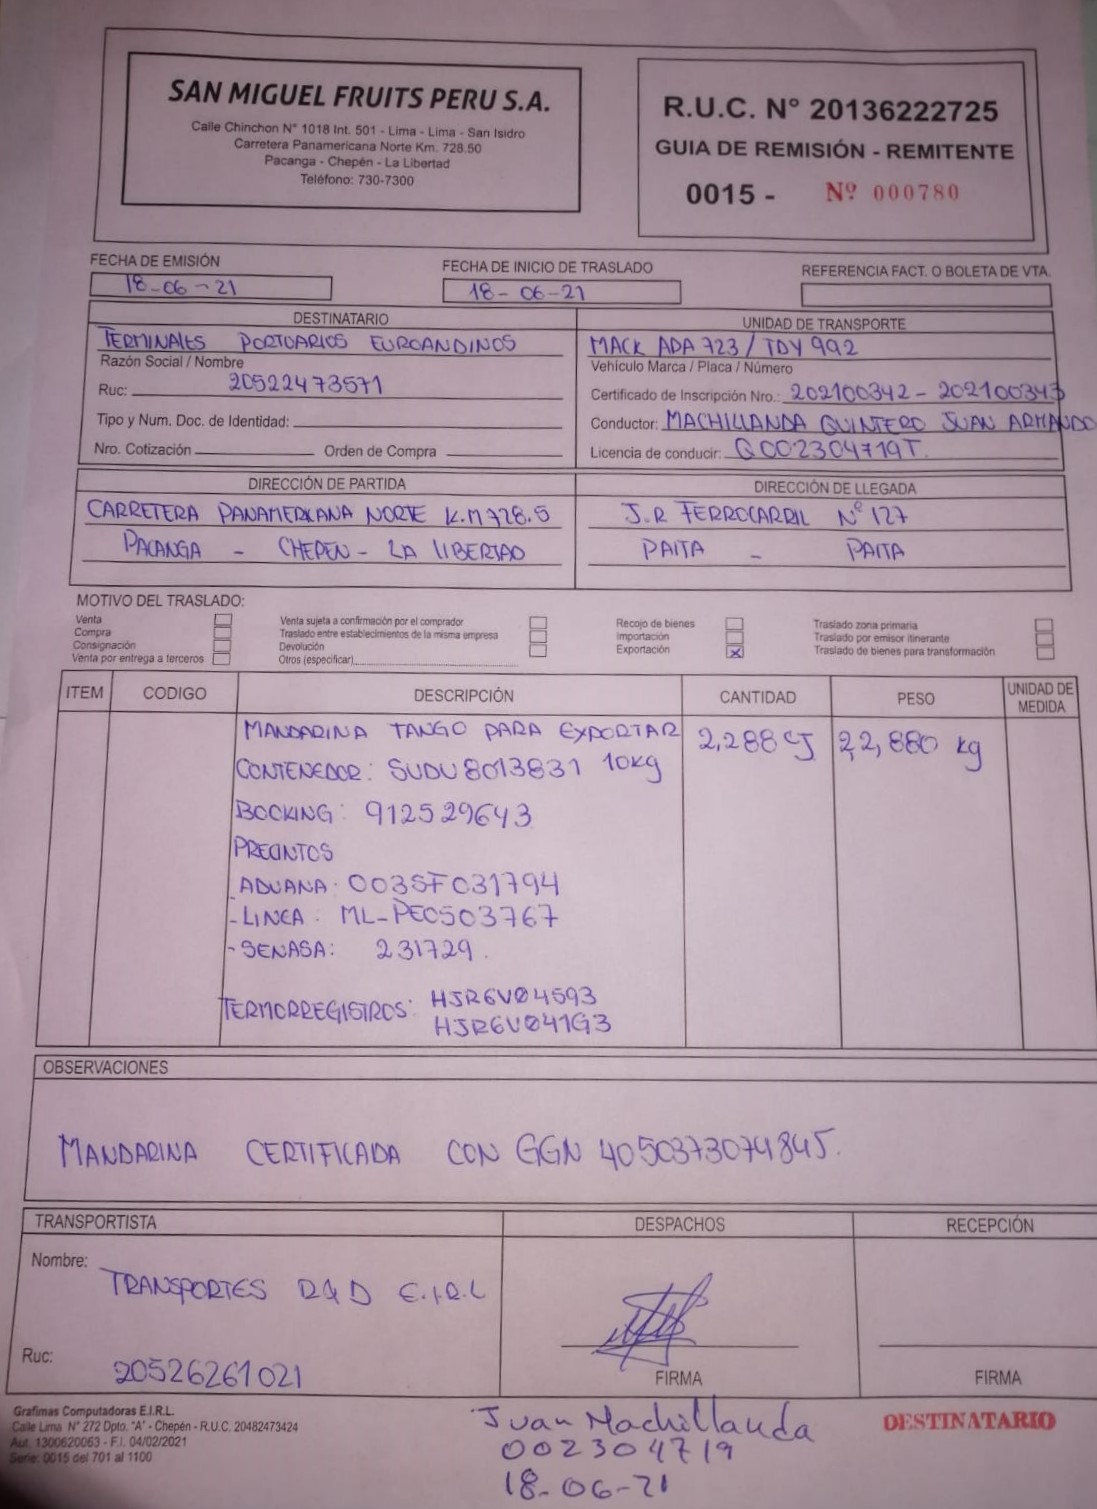 SAN MIGUEL FRUITS PERU S.A.
Calle Chinchon N° 1018 Int. 501 - Lima - Lima - San Isidro
Carretera Panamericana Norte Km. 728.50
Pacanga - Chepén - La Libertad
Teléfono: 730-7300
R.U.C. N° 20136222725
GUIA DE REMISIÓN - REMITENTE
0015 - Nº 000780
FECHA DE EMISIÓN
18-06-21
FECHA DE INICIO DE TRASLADO
18-06-21
REFERENCIA FACT. O BOLETA DE VTA.
DESTINATARIO
TERMINALES PORTUARIOS EUROANDINOS
Razón Social / Nombre
Ruc: 20522473571
Tipo y Num. Doc. de Identidad:
Nro. Cotización Orden de Compra
UNIDAD DE TRANSPORTE
MACK ADA 723 / TDY 992
Vehículo Marca / Placa / Número
Certificado de Inscripción Nro.: 202100342 - 202100343
Conductor: MACHILLANDA QUINTERO JUAN ARMANDO
Licencia de conducir: Q002304719T.
DIRECCIÓN DE PARTIDA
CARRETERA PANAMERICANA NORTE K.M 728.5
PACANGA - CHEPEN - LA LIBERTAD
DIRECCIÓN DE LLEGADA
J.R FERROCARRIL N° 127
PAITA - PAITA
MOTIVO DEL TRASLADO:
Venta
Compra
Consignación
Venta por entrega a terceros
Venta sujeta a confirmación por el comprador
Traslado entre establecimientos de la misma empresa
Devolución
Otros (especificar)
Recojo de bienes
Importación
Exportación X
Traslado zona primaria
Traslado por emisor itinerante
Traslado de bienes para transformación
ITEM CODIGO DESCRIPCIÓN CANTIDAD PESO UNIDAD DE MEDIDA
MANDARINA TANGO PARA EXPORTAR 2,288 CJ 22,880 kg
CONTENEDOR: SUDU8013831 10kg
BOCKING: 912529643
PRECINTOS
- ADUANA: 003SF031794
- LINEA: ML-PE0503767
- SENASA: 231729.
TERMORREGISTROS: HJR6V04593
HJR6V041G3
OBSERVACIONES
MANDARINA CERTIFICADA CON GGN 4050373074845.
TRANSPORTISTA
Nombre:
TRANSPORTES R&D E.I.R.L
Ruc: 20526261021
DESPACHOS
FIRMA
RECEPCIÓN
FIRMA
Grafimas Computadoras E.I.R.L.
Calle Lima N° 272 Dpto. "A" - Chepén - R.U.C. 20482473424
Aut. 1300620063 - F.I. 04/02/2021
Serie: 0015 del 701 al 1100
Juan Machillanda
002304719
18-06-21
DESTINATARIO